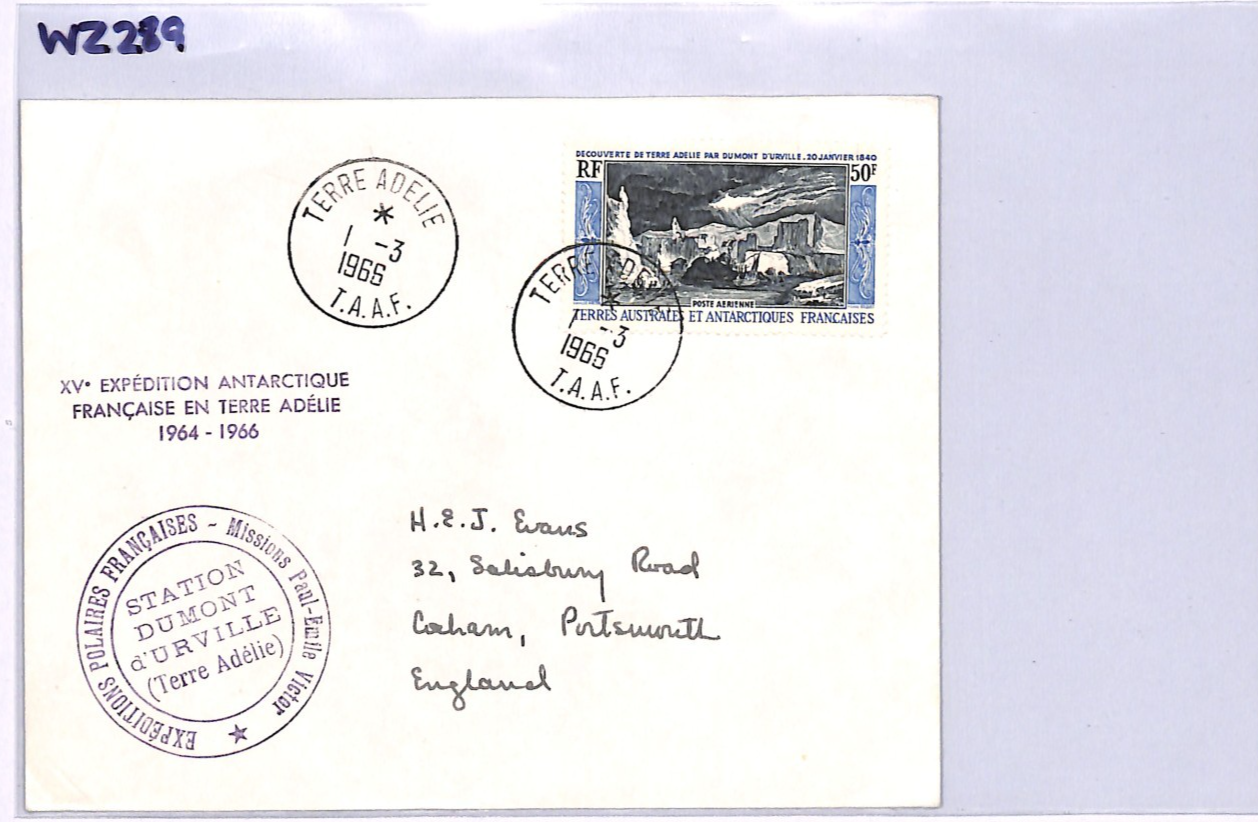 WZ289
TERRE ADELIE
*
1 -3
1966
T.A.A.F.
DECOUVERTE DE TERRE ADELIE PAR DUMONT D'URVILLE. 20 JANVIER 1840
RF
50F
POSTE AERIENNE
TERRES AUSTRALES ET ANTARCTIQUES FRANÇAISES
TERRE ADELIE
*
1 -3
1966
T.A.A.F.
XVe EXPÉDITION ANTARCTIQUE
FRANÇAISE EN TERRE ADÉLIE
1964 - 1966
EXPÉDITIONS POLAIRES FRANÇAISES ~ Missions Paul-Emile Victor
STATION
DUMONT
d'URVILLE
(Terre Adélie)
H.E.J. Evans
32, Salisbury Road
Cosham, Portsmouth
England